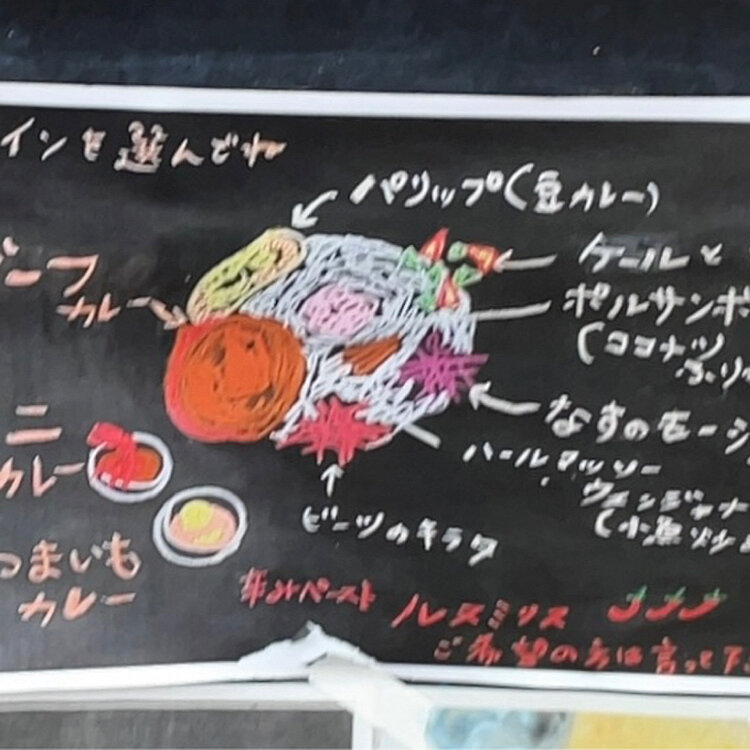 インを選んでね
パリップ(豆カレー)
ビーフ
カレー
ケールと
ポルサンボ
(ココナッツ
ふり
なすのモージ
ハールマッソー
ウェンジャナ
(小魚炒め
ビーツのキラタ
ニ
カレー
つまいも
カレー
辛みペースト ルヌミリス
ご希望の方は言って下